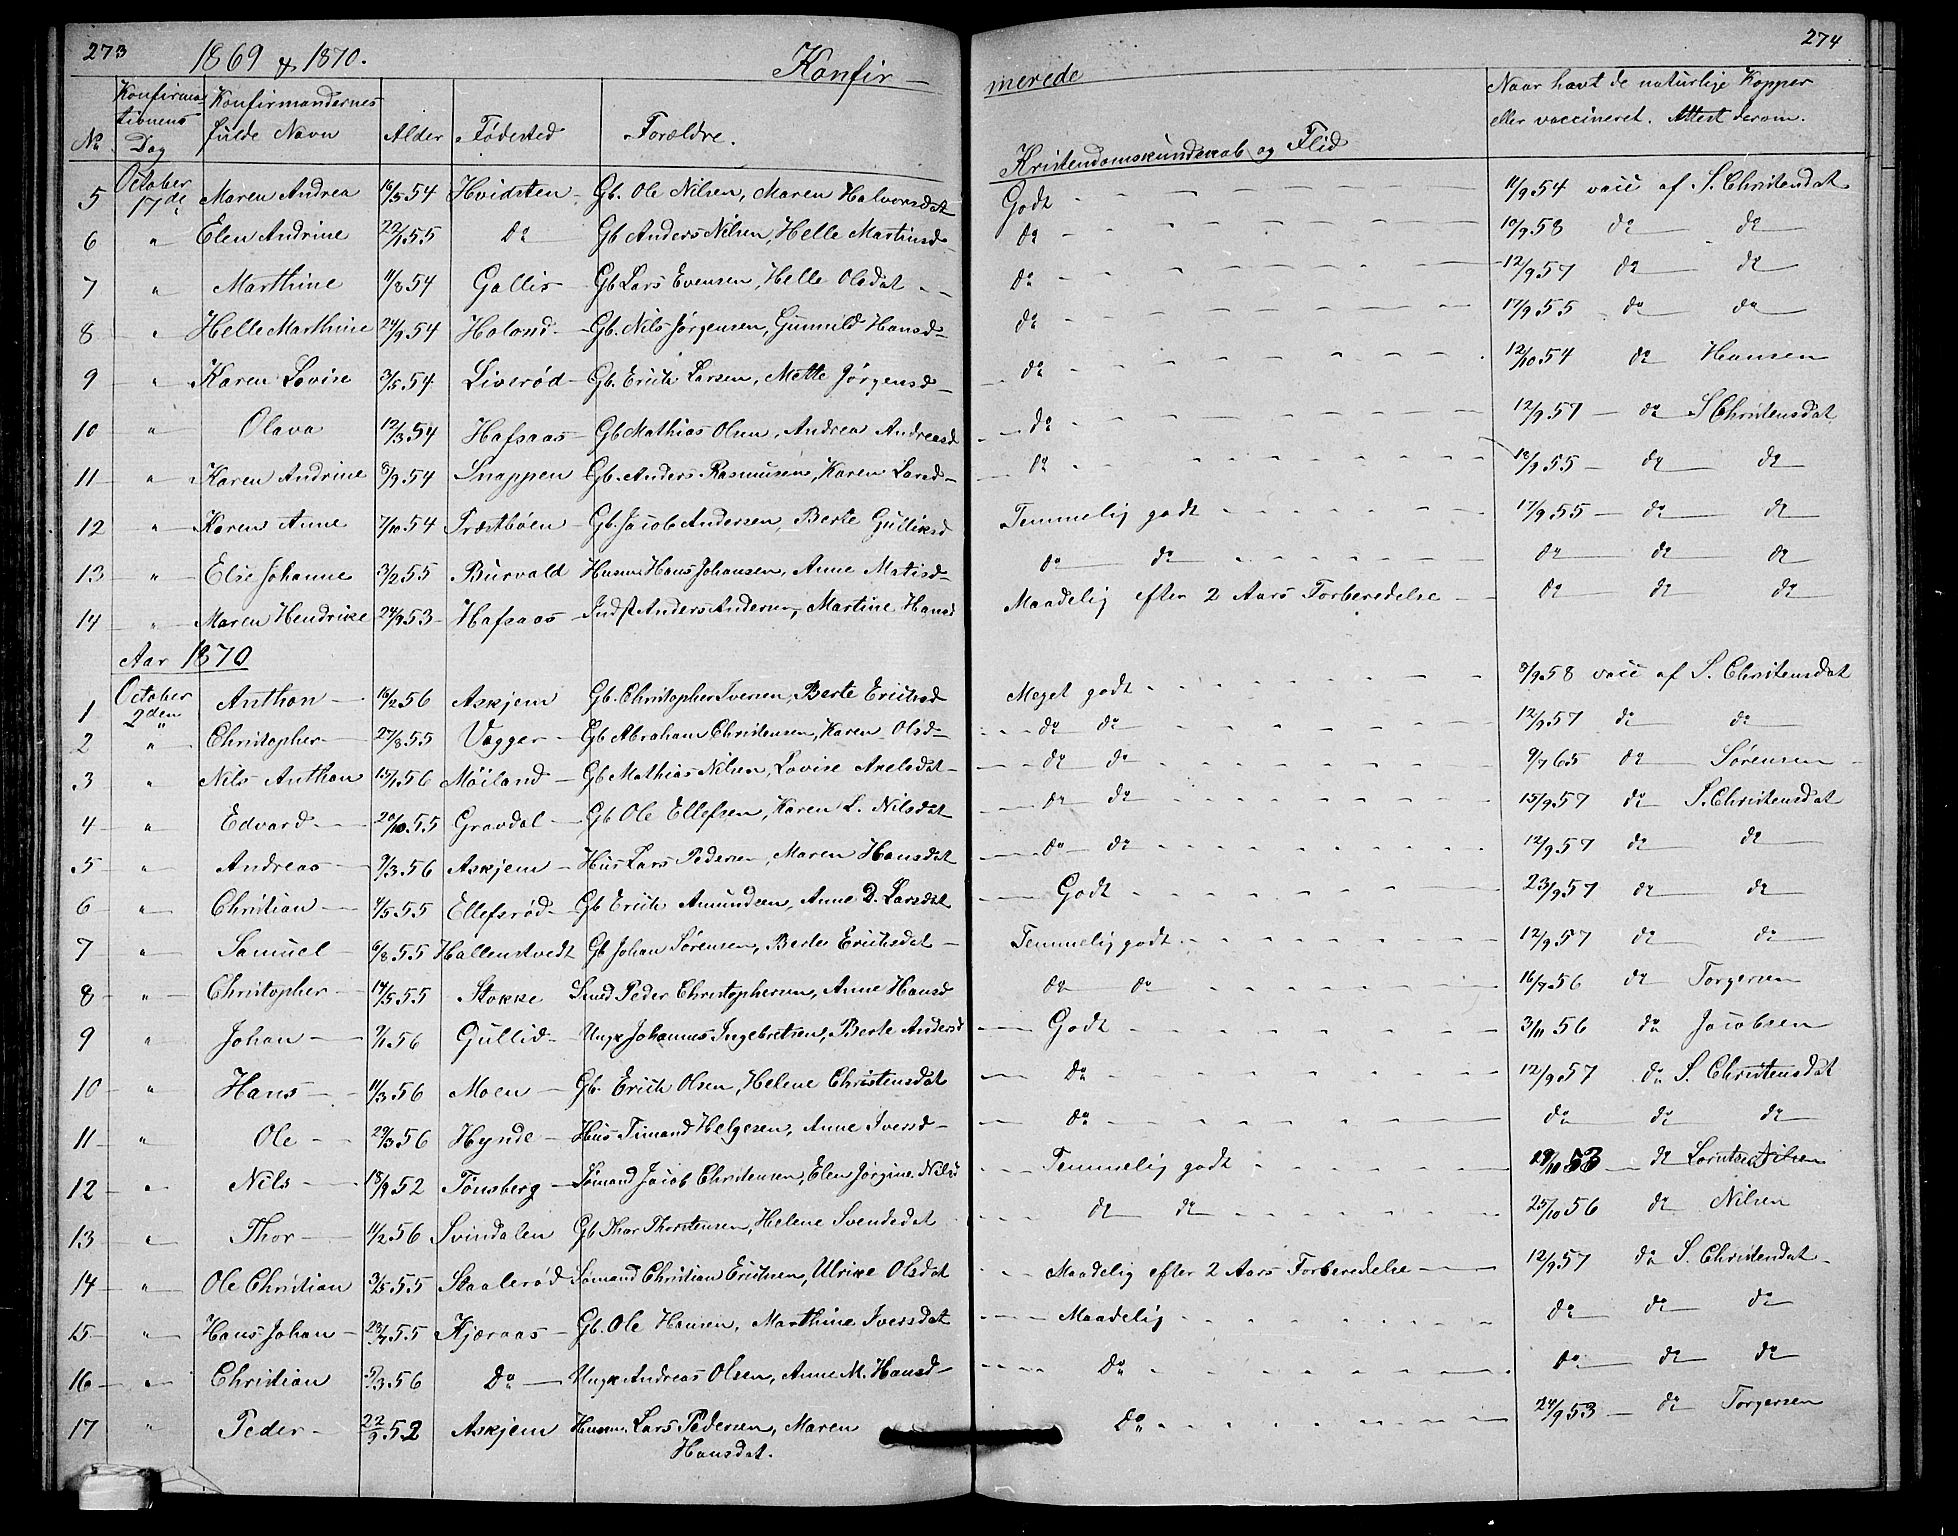 273 1869 & 1870. Konfir-
merede 274
No Konfirmationens Dag Konfirmandernes fulde Navn Alder Fødested Forældre. Kristendomskundskab og Flid Naar havt de naturlige Kopper eller vaccineret. Attest derom.
5 October 17de Maren Andrea 16/5 54 Hvidsten Gb. Ole Nilsen, Maren Halvorsdat Godt 11/9 54 vacc af S. Christensdat
6 " Elen Andrine 22/1 55 do Gb Anders Nilsen, Helle Martinsd do 10/9 58 do do
7 " Marthine 11/8 54 Gallis Gb Lars Evensen, Helle Olsdat do 12/9 57 do do
8 " Helle Marthine 24/9 54 Holand Gb. Nils Jørgensen, Gunnild Hansd do 17/9 55 do do
9 " Karen Lovise 3/5 54 Liverød Gb. Erich Larsen, Mette Jørgensd do 12/10 54 do Hansen
10 " Olava 12/3 54 Hafsaas Gb Mathias Olsen, Andrea Andreasd do 12/9 57 do S Christensdat
11 " Karen Andrine 8/9 54 Snappen Gb. Anders Rasmussen, Karen Larsd do 18/9 55 do do
12 " Karen Anne 7/10 54 Præstbøen Gb. Jacob Andersen, Berte Gulliksd Temmelig godt 17/9 55 do do
13 " Else Johanne 3/2 55 Burvald Husm Hans Johansen, Anne Matisd do do do do do
14 " Maren Hendrike 24/9 53 Hafsaas Indst Anders Andersen, Martine Hansd Maadelig efter 2 Aars Forberedelse do do do
Aar 1870
1 October 2den Anthon 16/2 56 Askjem Gb. Christopher Iversen, Berte Erichsd Meget godt 8/9 58 vacc af S. Christensdat
2 " Christopher 27/8 55 Vegger Gb Abraham Christensen, Karen Olsd do do 12/9 57 do do
3 " Nils Anthon 13/1 56 Möiland Gb Mathias Nilsen, Lovise Axelsdat do do 9/7 65 do Sørensen
4 " Edvard 20/10 55 Gravdal Gb Ole Ellefsen, Karen L. Nilsdat do do 15/9 57 do S. Christensdat
5 " Andreas 9/3 56 Askjem Hus Lars Pedersen, Maren Hansdat do do 12/9 57 do do
6 " Christian 7/5 55 Ellefsrød Gb Erich Amundsen, Anne D. Larsdat Godt 23/9 57 do do
7 " Samuel 6/8 55 Hallenstvedt Gb Johan Sørensen, Berte Erichsdat Temmelig godt 12/9 57 do do
8 " Christopher 14/5 55 Stokke Smed Peder Christophersen, Anne Hansd do do 16/7 56 do Torgersen
9 " Johan 7/1 56 Gullid Ungk Johannes Ingebretsen, Berte Andersd Godt 3/11 56 do Jacobsen
10 " Hans 11/3 56 Moen Gb. Erich Olsen, Helene Christensdat Do 12/9 57 do S. Christensdat
11 " Ole 29/3 56 Hynde Hus Timand Helgesen, Anne Iversd do do do do
12 " Nils 18/9 52 Tønsberg Sømand Jacob Christensen, Elen Jørgine Nilsd Temmelig godt 53 do Nilsen
13 " Thor 11/2 56 Svindalen Gb Thor Thorstensen, Helene Svendsdat do do 25/10 56 do Nilsen
14 " Ole Christian 3/5 55 Skaalerød Sømand Christian Erichsen, Ulrike Olsdat Maadelig efter 2 Aars Forberedelse 12/9 57 do S. Christensdat
15 " Hans Johan 23/7 55 Kjæraas Gb. Ole Hansen, Marthine Iversdat Maadelig do do do
16 " Christian 5/3 56 Do Ungk Andreas Olsen, Anne M. Hansd Do do do do
17 " Peder 22/9 52 Askjem Husm. Lars Pedersen, Maren Do 24/9 53 do Torgersen
Hansdat.